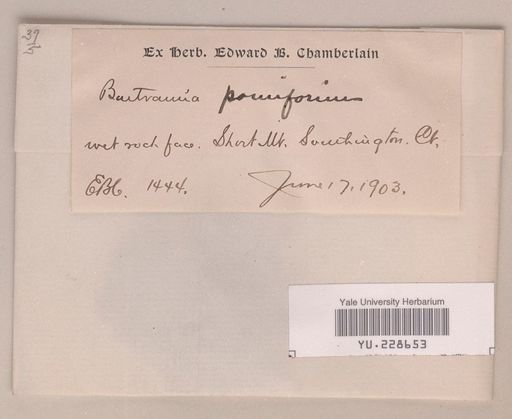 39
5
Ex Herb. Edward B. Chamberlain
Bartramia pomiformis
wet rock face. Short Mt. Southington. Ct.
EBC. 1444. June 17, 1903.
Yale University Herbarium
YU.228653